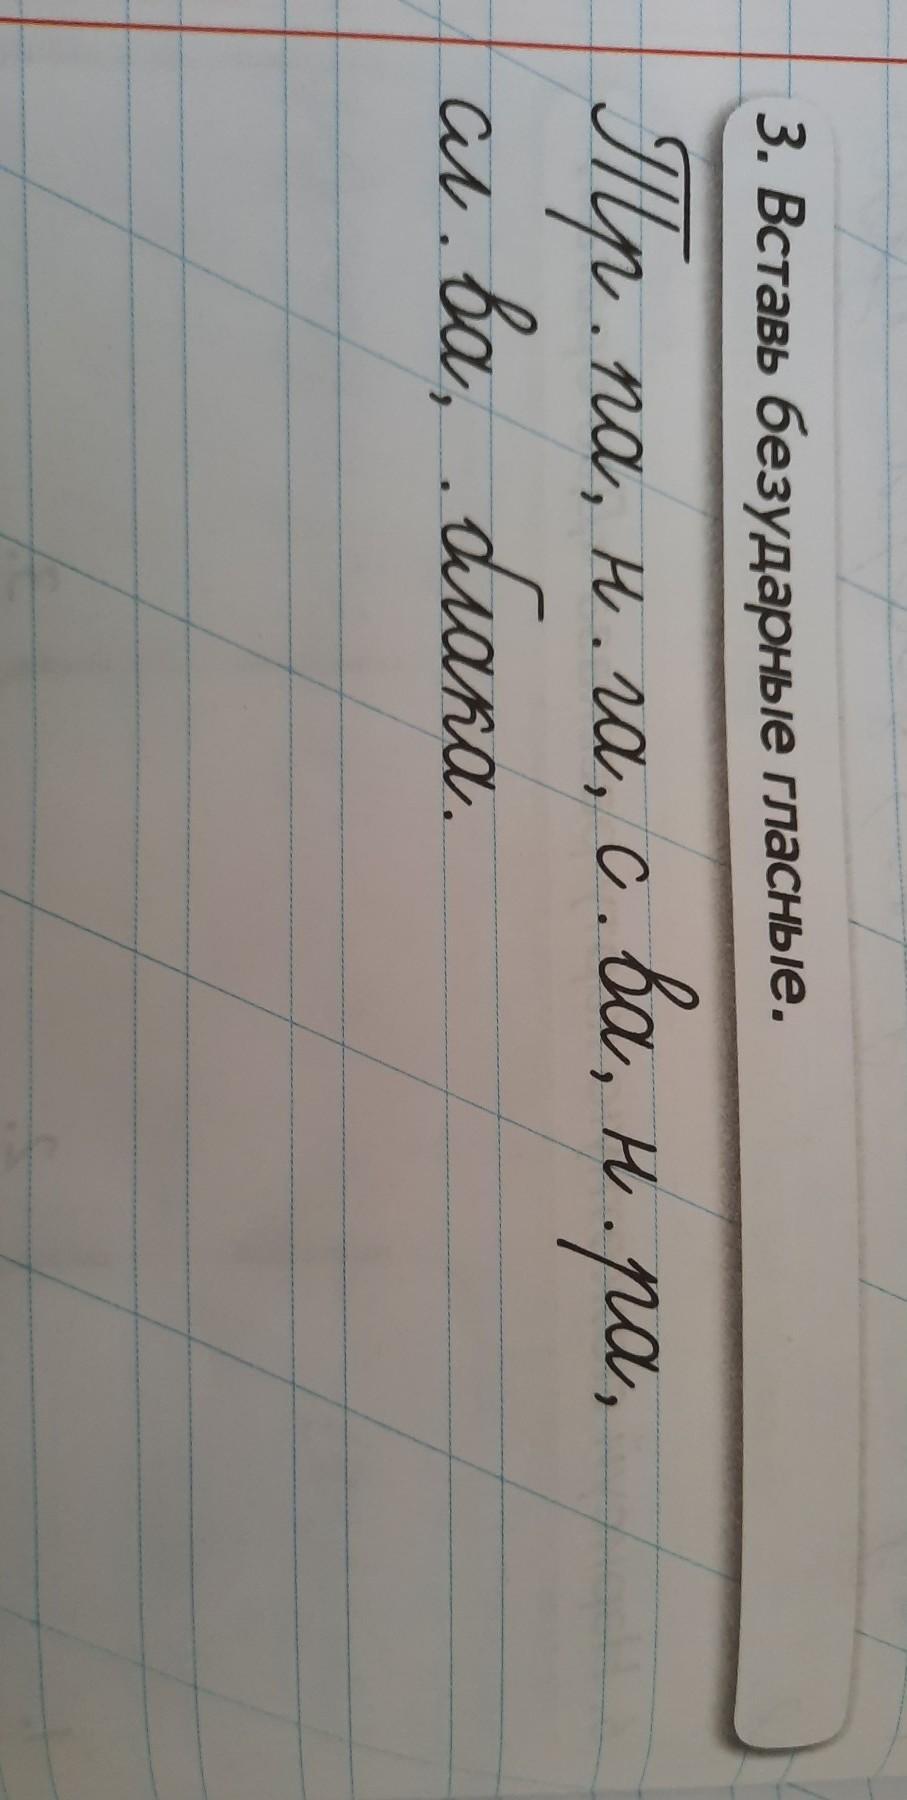 3. Вставь безударные гласные.
Тр.па, н.га, с.ва, н.ра,
сл.ва, .блака.